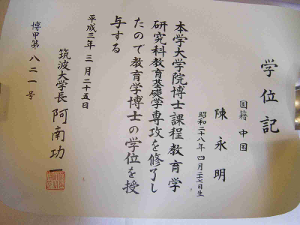 学位記
国籍 中国
陳永明
昭和二十八年四月二十七日生
本学大学院博士課程教育学
研究科教育基礎学専攻を修了し
たので教育学博士の学位を授
与する
平成三年三月二十五日
筑波大学長 阿南功
博甲第八二一号